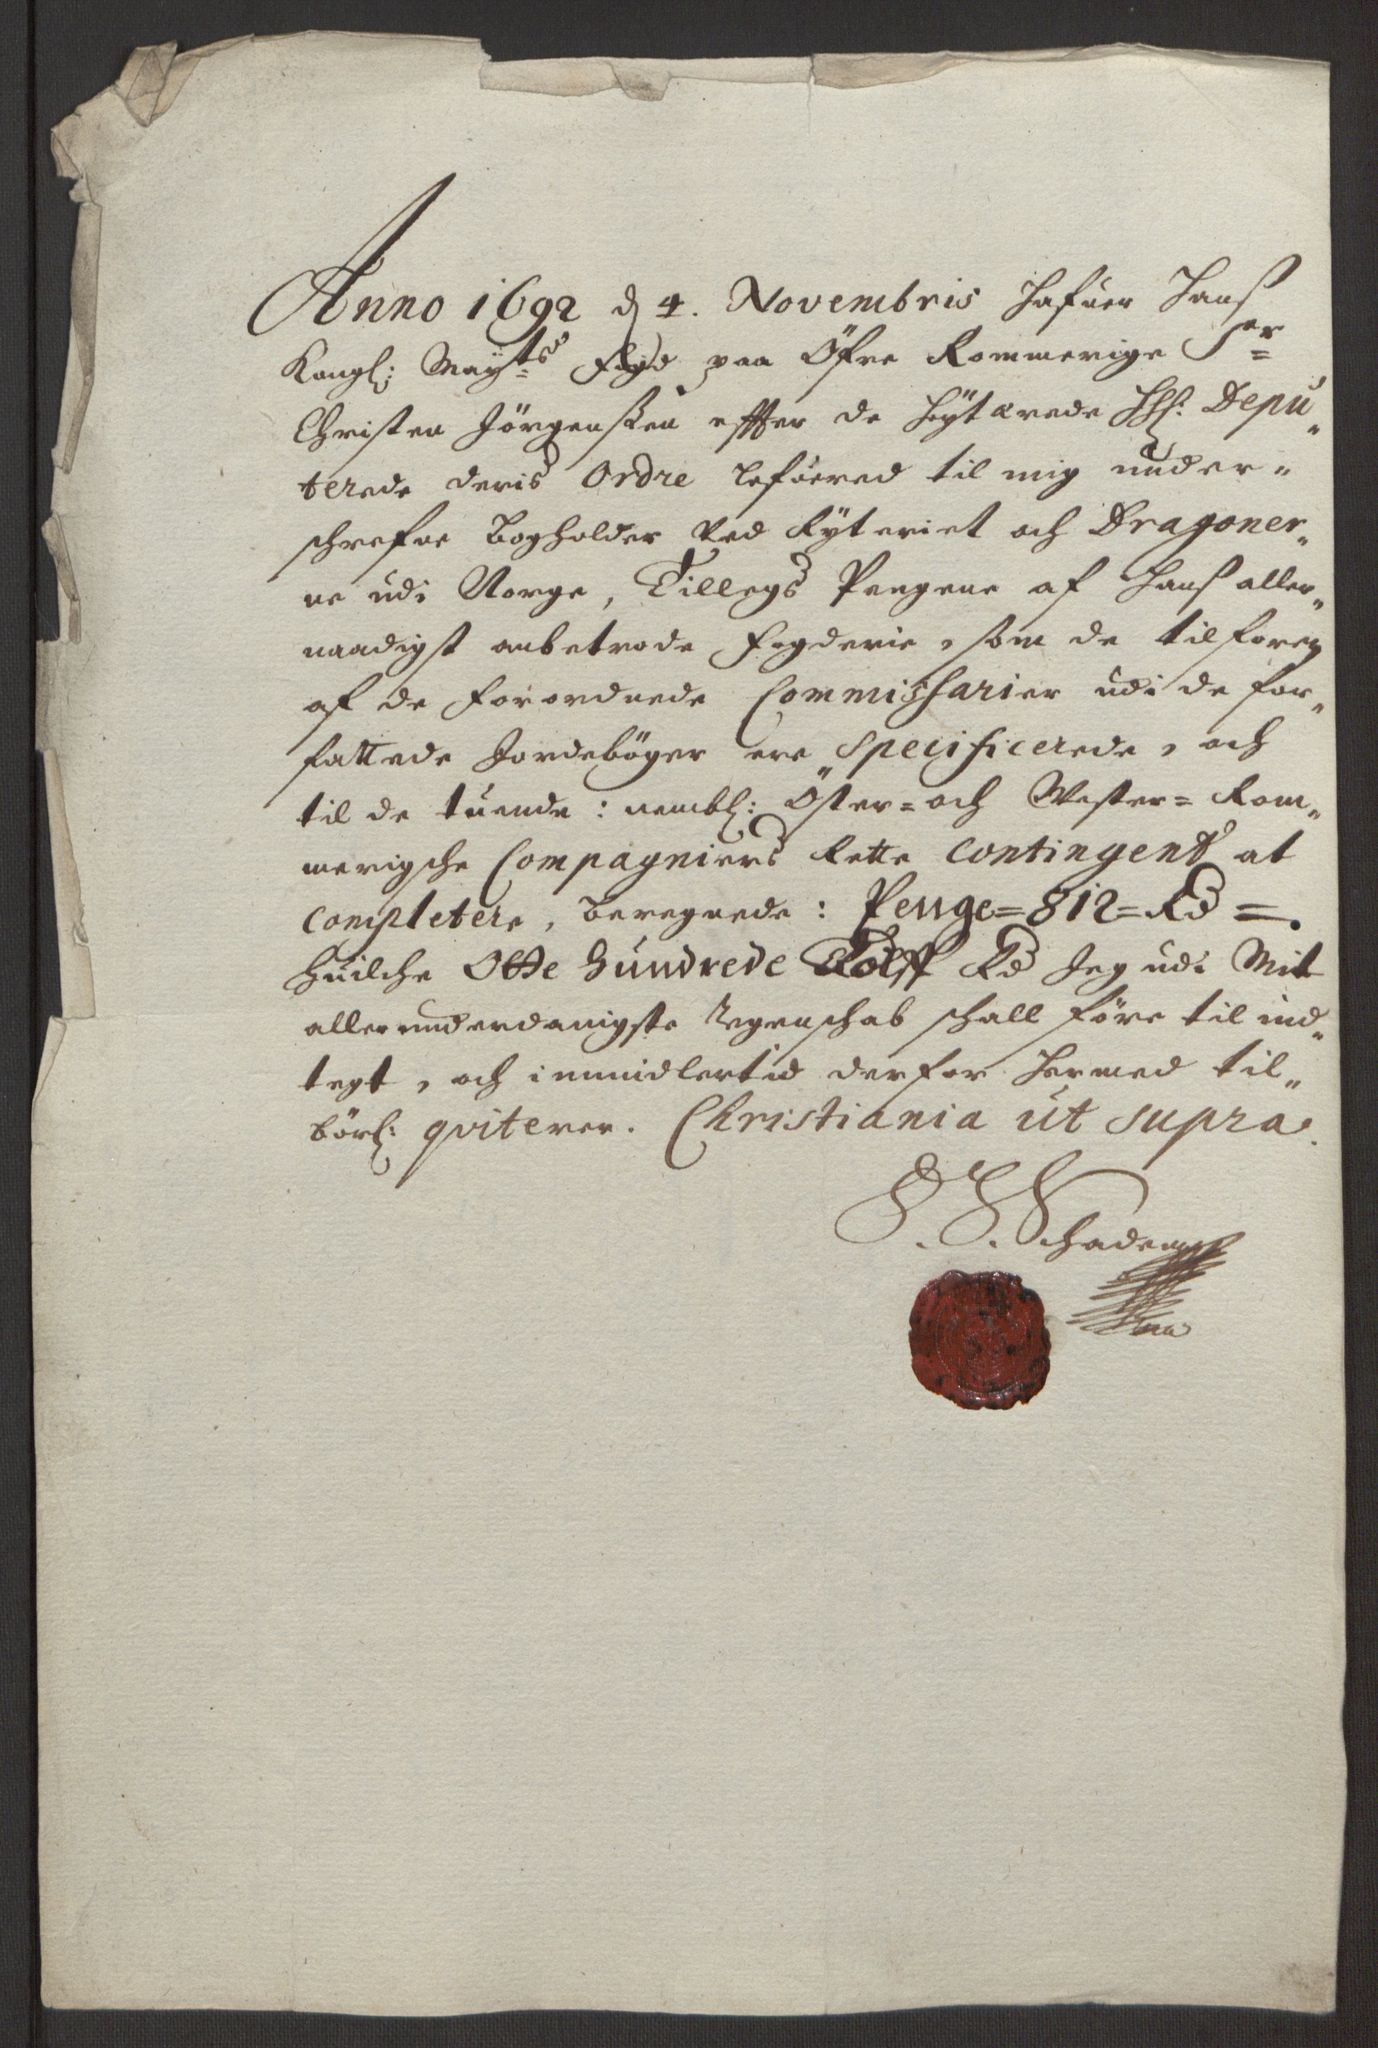 Anno 1692 d 4. Novembris hafuer Hans
Kongl: May:ts Fogd paa Öfre Rommerige Sr
Christen Jörgenssen effter de höyt ærede HH: Depu„
terede deris Ordre lefvered til mig under„
schrefne Bogholder ved Rÿteriet och Dragoner„
ne udi Norge, Tillegs Pengene af hans aller„
naadigst anbetrode fogderie, som de tilforen
af de forordnede Commissarier udi de for„
fattede Jordeböger ere specificerede, och
til de tuende: nembl: Öster= och Wester= Rom„
merigsche Compagniers Rette Contingent at
completere, beregnede: Penge=812=Rd =.
huilche Otte Hundrede Tolff Rd Jeg udi Mit
allerunderdanigste Regenschab schall före til ind„
tegt, och imidlertid derfor hermed til„
börl: qviterer. Christiania ut supra.
Schade